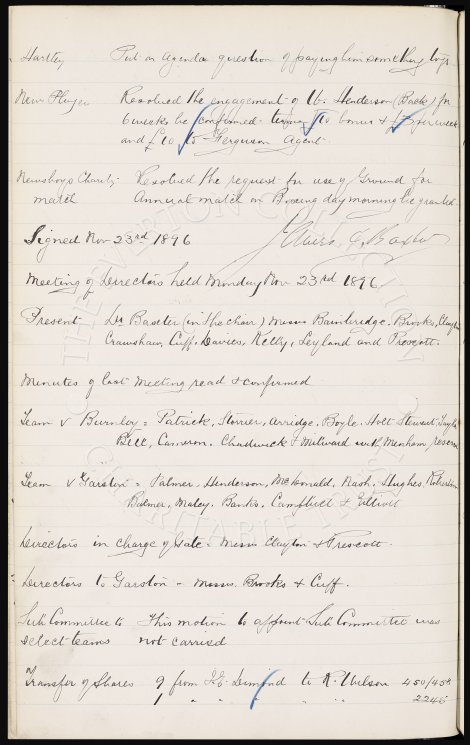 Hartley Put on Agenda question of paying him something
New Player Resolved the engagement of W. Henderson (Back) for
6 weeks be confirmed. terms £10 bonus & £3 per week
and £10 to Ferguson Agent.
Newsboys Charity Resolved the request for use of Ground for
match Annual match on Boxing day morning be granted
Signed Nov 23rd 1896 James C. Baxter
Meeting of Directors held Monday Nov 23rd 1896
Present Dr Baxter (in the chair) Messrs Bainbridge, Brooks, Clayton
Crawshaw, Cuff, Davies, Kelly, Leyland and Prescott.
Minutes of last meeting read & confirmed
Team v Burnley = Patrick, Storrier, Arridge, Boyle, Holt Stewart, Taylor
Bell, Cameron, Chadwick & Milward with Menham, reserve
Team v Garston = Palmer, Henderson, McDonald, Nash, Hughes, Robertson
Balmer, Maley, Banks, Campbell & Elliott
Directors in charge of Gate. Messrs Clayton & Prescott.
Directors to Garston - Messrs. Brooks & Cuff.
Sub Committee to This motion to appoint Sub Committee was
select teams not carried
Transfer of Shares 9 from J.E. Dimond to R. Wilson 450/458
1 " " " " 2246
THE EVERTON COLLECTION
CHARITABLE TRUST